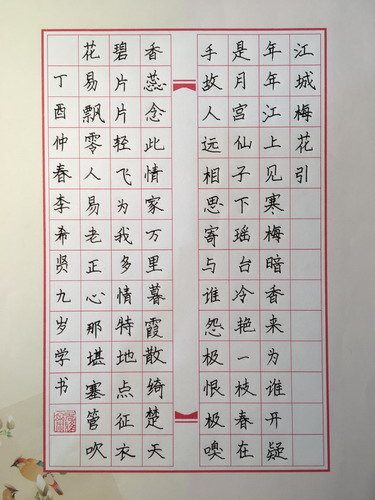 江城梅花引
年年江上见寒梅暗香来为谁开疑
是月宫仙子下瑶台冷艳一枝春在
手故人远相思寄与谁怨极恨极嗅
香蕊念此情家万里暮霞散绮楚天
碧片片轻飞为我多情特地点征衣
花易飘零人易老正心那堪塞管吹
丁酉仲春李希贤九岁学书